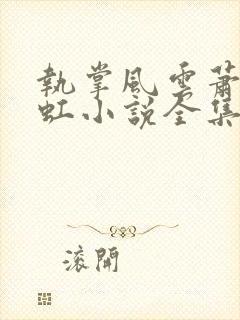 執掌風雲蕭
虹小說全集
滾開